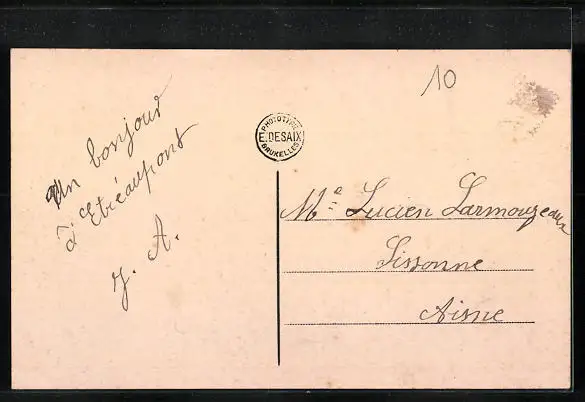 Un bonjour
d'Etréaupont
J. A.
10
PHOTOTYPIE
E. DESAIX
BRUXELLES
Me Lucien Larmouzeaux
Sissonne
Aisne